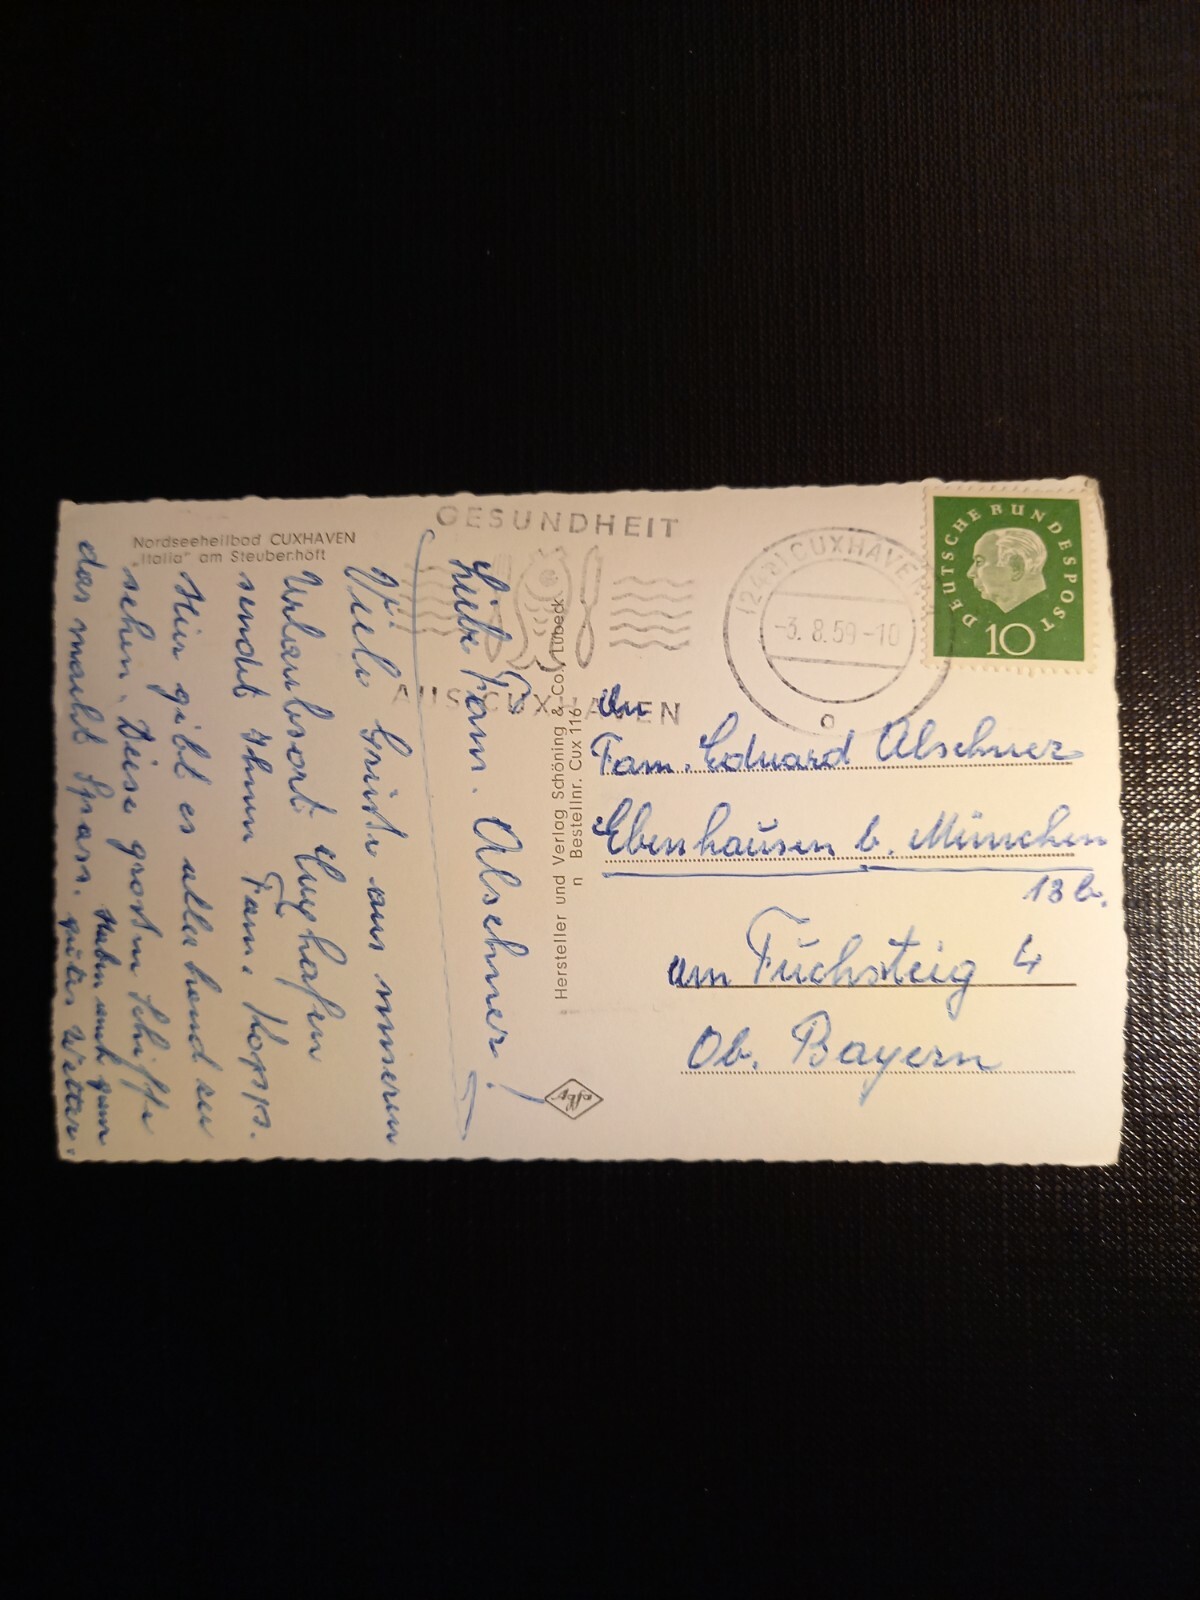 Nordseeheilbad CUXHAVEN
„Italia" am Steubenhöft
GESUNDHEIT
AUS CUXHAVEN
(24a) CUXHAVEN
-3. 8.59-10
a
DEUTSCHE BUNDESPOST
10
Hersteller und Verlag Schöning & Co., Lübeck
n Bestellnr. Cux 116
Agfa
Liebe Fam. Alschner!
Viele Grüße aus unseren
Urlaubsort Cuxhafen
sendet Ihnen Fam. Kopp.
Hier gibt es allerhand zu
sehen. Diese großen Schiffe
das macht Spass. Haben auch ganz
gutes Wetter.
An
Fam. Eduard Alschner
Ebenhausen b. München
13b.
am Fuchsteig 4
Ob. Bayern